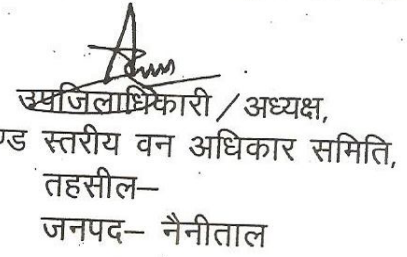 उपजिलाधिकारी / अध्यक्ष,
ण्ड स्तरीय वन अधिकार समिति,
तहसील–
जनपद– नैनीताल